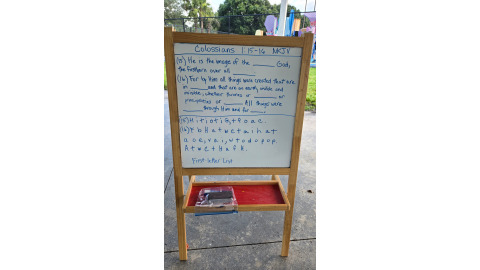 Colossians 1:15-16 NKJV
(15) He is the image of the ______ God,
the firstborn over all ______.
(16) For by Him all things were created that are
in ______ and that are on earth, visible and
invisible, whether thrones or ______ or
principalities or ______. All things were
through Him and for ______.
(15) H, i, t, i, o, t, i, G, t, f, o, a, c.
(16) F b H a t w c t a i h a t
a o e, v a i, w t o d o p o p.
A t w c t H a f H.
First letter List